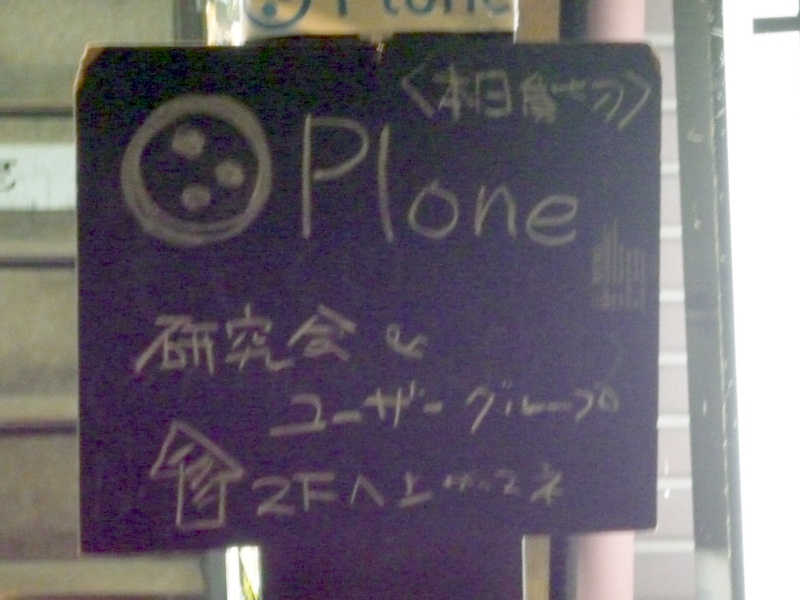 Plone
<本日貸切>
Plone
研究会 &
ユーザーグループ
2Fへ上がってネ